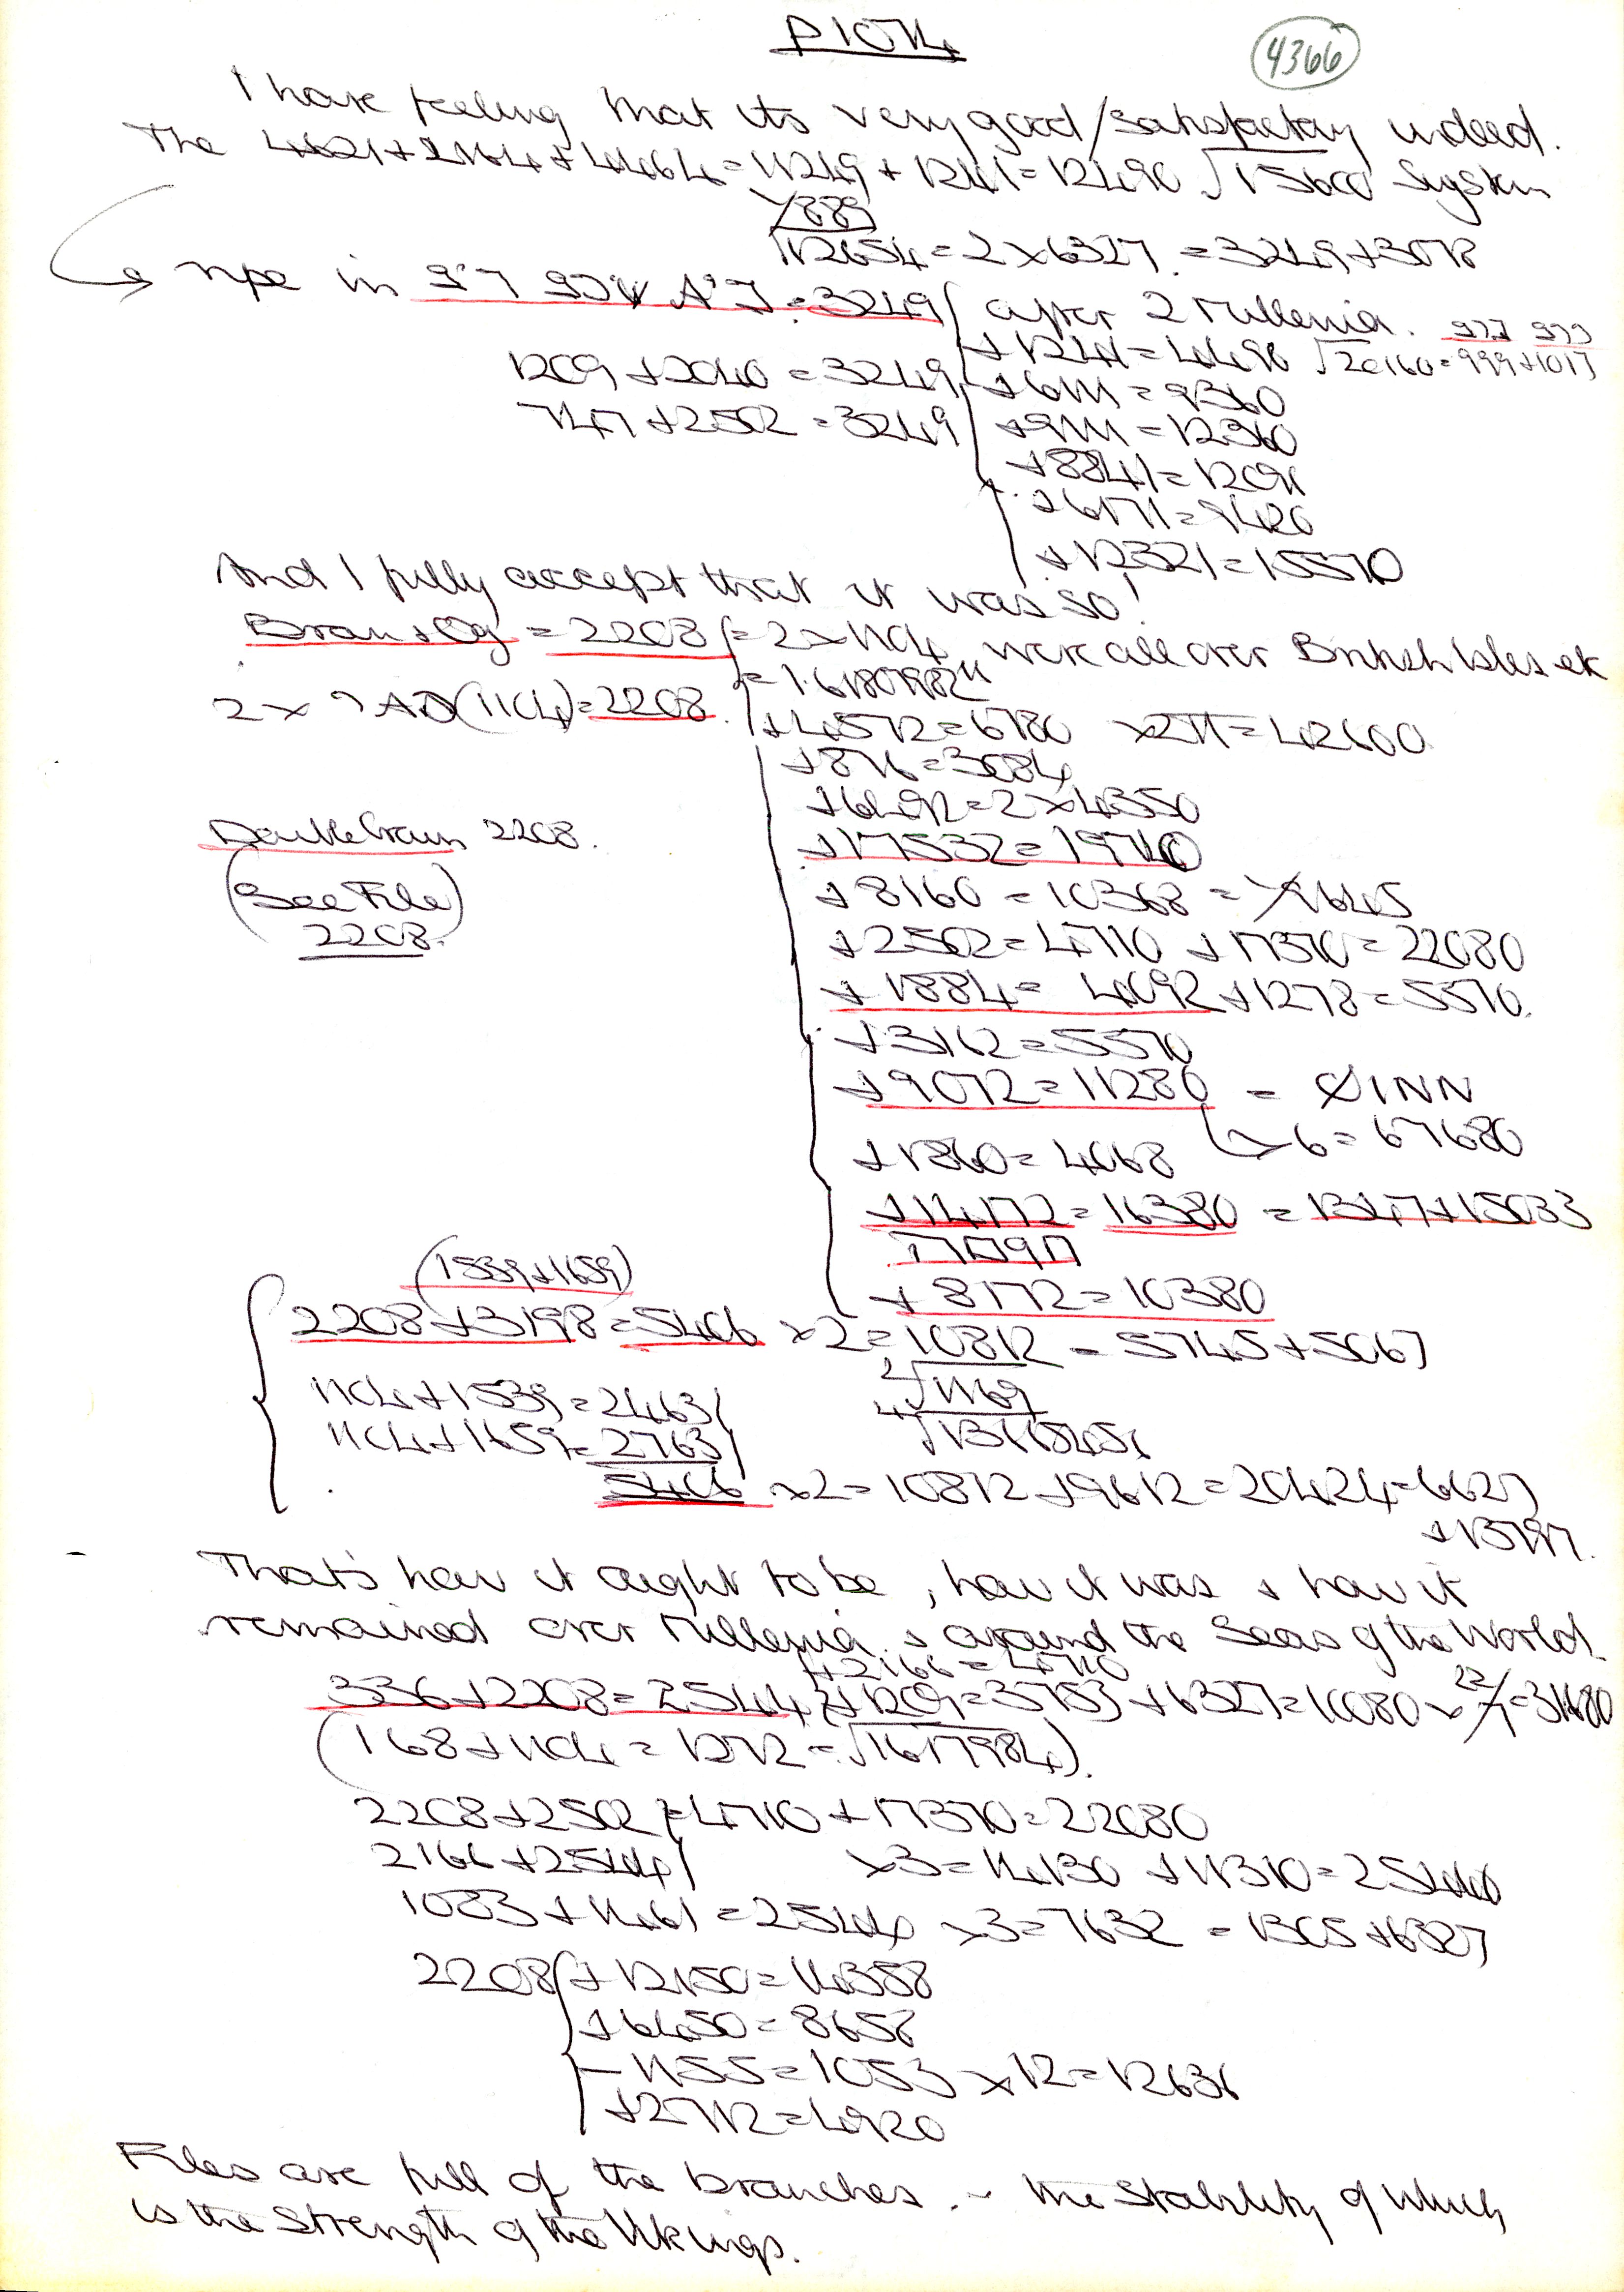 P1074
4366
I have feeling that its very good/satisfactory indeed.
The 4621+2164+4464=11249+1241=12490 √15600 System
√12654=2×6327=3249+3078
ripe in =3249 after 2 Millenia.
+1241=4490 √20160=999+1017
1209+2040=3249 +6111=9360
747+2502=3249 +9111=12360
+8841=12091
+6171=9420
+12321=15570
And I fully accept that it was so!
Bran+Og=2208=2×1104 were all over British Isles etc
2× (1104)=2208.
+4572=6780 ×2π=42600
+876=3084
+6492=2×4350
Double Bran 2208.
+17532=19740
(See File)
2208.
+8160=10368
+2502=4710 +17370=22080
+1884=4092+1278=5570
+3162=5570
+9072=11280 = ØINN
×6=67680
+1860=4068
+14172=16380=1347+15033
(1539+1659)
+8172=10380
2208+3198=5406 ×2=10812=5745+5067
1104+1539=2463
1104+1659=2763
5406 ×2=10812+9612=20424=6627
+13797.
That's how it aught to be, how it was & how it
remained over Millenia & around the Seas of the World
+2166=4710
336+2208=2544 +1209=3753 +6327=10080×22/7=31680
(168+1104=1272=√1617984).
2208+2502=4710+17370=22080
2166+2544 ×3=14130+11310=25440
1083+1461=2544 ×3=7632=1305+6327
2208 +12150=14358
+6450=8658
-1155=1053×12=12636
+2712=4920
Files are full of the branches .~ the stability of which
is the Strength of the Vikings.